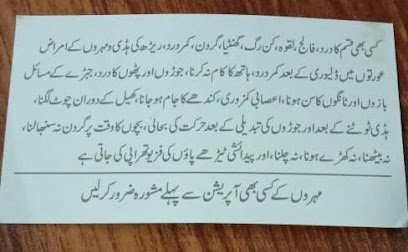 کسی بھی قسم کا درد، فالج، لقوہ، کن رگ، گنٹھیا، گردن، کمر درد، ریڑھ کی ہڈی ومہروں کے امراض
عورتوں میں ڈلیوری کے بعد کمر درد، ہاتھ کا کام نہ کرنا، جوڑوں اور پٹھوں کا درد، جبڑے کے مسائل
بازوں اور ٹانگوں کا سن ہونا، اعصابی کمزوری، کندھے کا جام ہو جانا، کھیل کے دوران چوٹ لگنا،
ہڈی ٹوٹنے کے بعد اور جوڑوں کی تبدیلی کے بعد حرکت کی بحالی، بچوں کا وقت پر گردن نہ سنبھالنا،
نہ بیٹھنا، نہ کھڑے ہونا، نہ چلنا، اور پیدائشی ٹیڑھے پاؤں کی فزیو تھراپی کی جاتی ہے
مہروں کے کسی بھی آپریشن سے پہلے مشورہ ضرور کر لیں